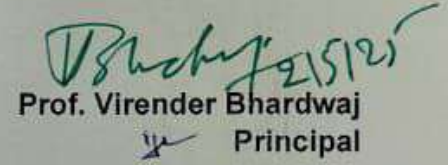 2/5/25
Prof. Virender Bhardwaj
Principal